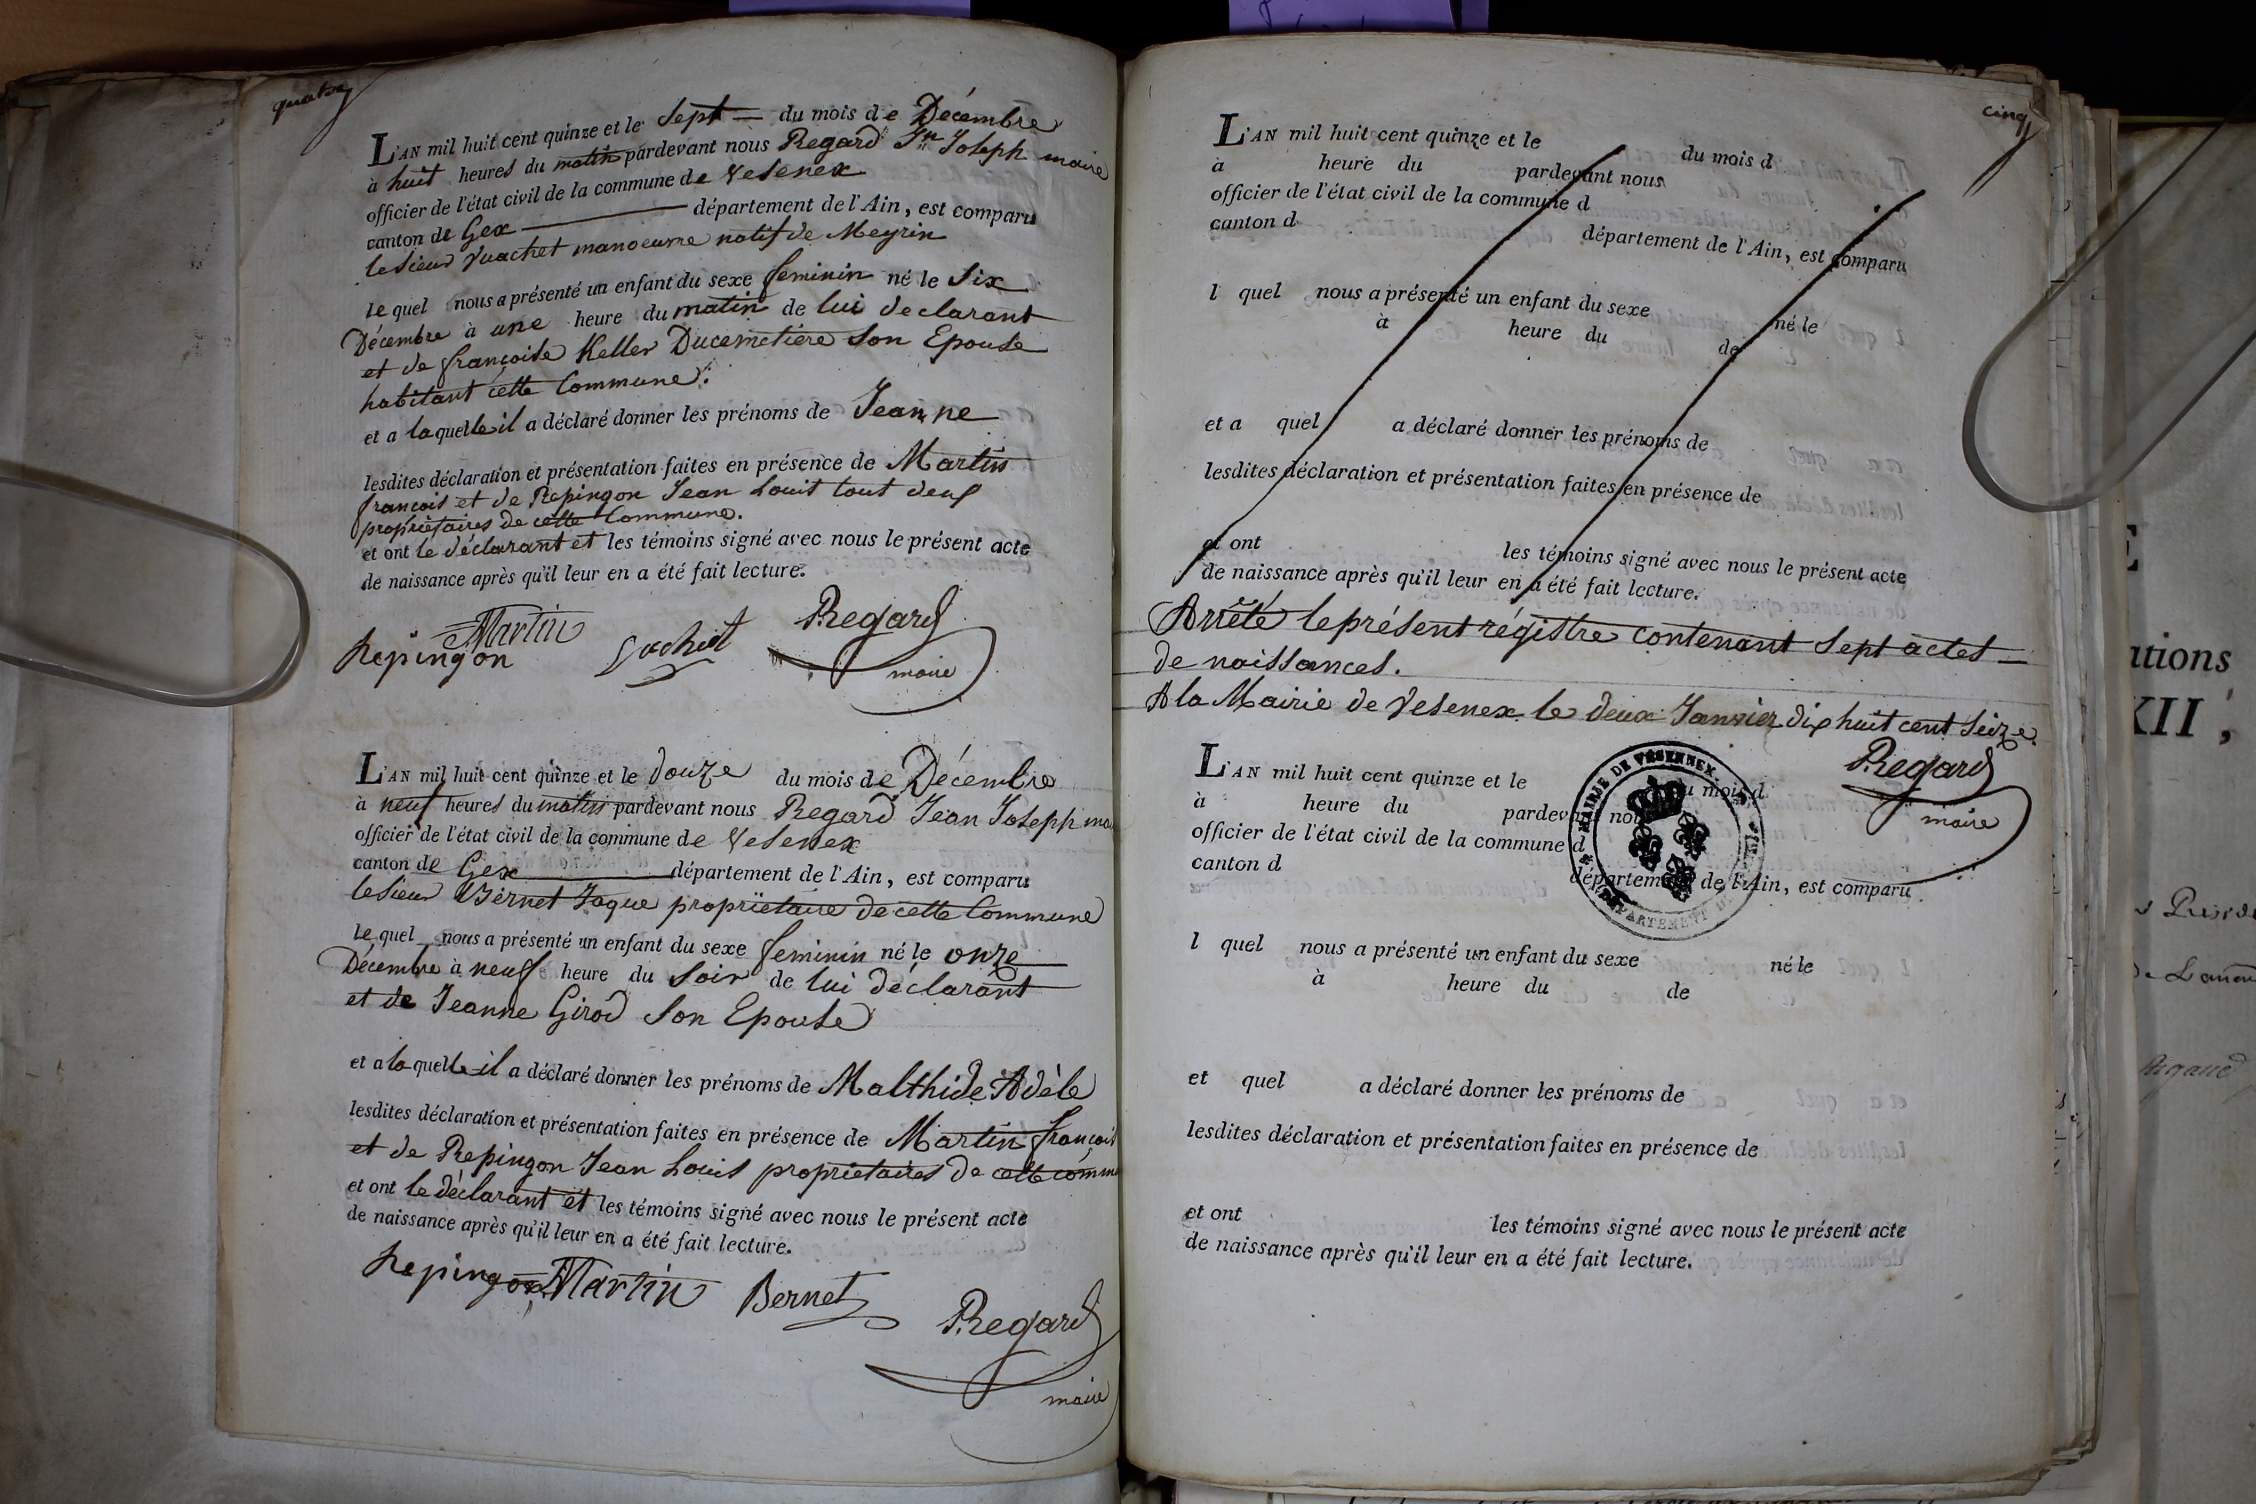 quatre
L'AN mil huit cent quinze et le Sept du mois de Décembre
à huit heures du matin pardevant nous Regard Jn Joseph maire
officier de l'état civil de la commune de Vesenex
canton de Gex département de l'Ain, est comparu
le Sieur Vuachet manoeuvre natif de Meyrin
lequel nous a présenté un enfant du sexe feminin né le Six
Décembre à une heure du matin de lui declarant
et de françoise Keller Ducemetiere Son Epouse
habitant cette Commune.
et a laquelle il a déclaré donner les prénoms de Jeanne
lesdites déclaration et présentation faites en présence de Martin
françois et de Repingon Jean Louis tout deux
propriétaires de cette Commune.
et ont le déclarant et les témoins signé avec nous le présent acte
de naissance après qu'il leur en a été fait lecture.
Martin
Repingon Vuachet Regard
maire
L'AN mil huit cent quinze et le douze du mois de Décembre
à neuf heures du matin pardevant nous Regard Jean Joseph
officier de l'état civil de la commune de Vesenex
canton de Gex département de l'Ain, est comparu
le Sieur Bernet Jaque propriétaire de cette Commune
lequel nous a présenté un enfant du sexe feminin né le onze
Décembre à neuf heure du Soir de lui déclarant
et de Jeanne Girod Son Epouse
et a laquelle il a déclaré donner les prénoms de Malthide Adèle
lesdites déclaration et présentation faites en présence de Martin françois
et de Repingon Jean Louis propriétaires de cette
et ont le déclarant et les témoins signé avec nous le présent acte
de naissance après qu'il leur en a été fait lecture.
Repingon Martin Bernet Regard
maire
cinq
L'AN mil huit cent quinze et le du mois d
à heure du pardevant nous
officier de l'état civil de la commune d
canton d département de l'Ain, est comparu
l quel nous a présenté un enfant du sexe né le
à heure du de
et a quel a déclaré donner les prénoms de
lesdites déclaration et présentation faites en présence de
et ont les témoins signé avec nous le présent acte
de naissance après qu'il leur en a été fait lecture.
Arrêté le présent régistre contenant Sept actes
de naissances.
A la Mairie de Vesenex le deux Janvier dix huit cent Seize
Regard
maire
MAIRIE DE VESENNEX.
DÉPARTEMENT DE L'AIN
L'AN mil huit cent quinze et le du mois d
à heure du pardevant nous
officier de l'état civil de la commune d
canton d département de l'Ain, est comparu
l quel nous a présenté un enfant du sexe né le
à heure du de
et quel a déclaré donner les prénoms de
lesdites déclaration et présentation faites en présence de
et ont les témoins signé avec nous le présent acte
de naissance après qu'il leur en a été fait lecture.
XII,